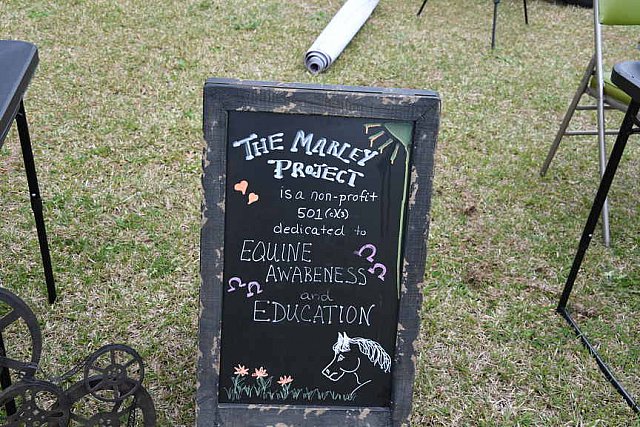 THE MARLEY
PROJECT
is a non-profit
501(c)(3)
dedicated to
EQUINE
AWARENESS
and
EDUCATION